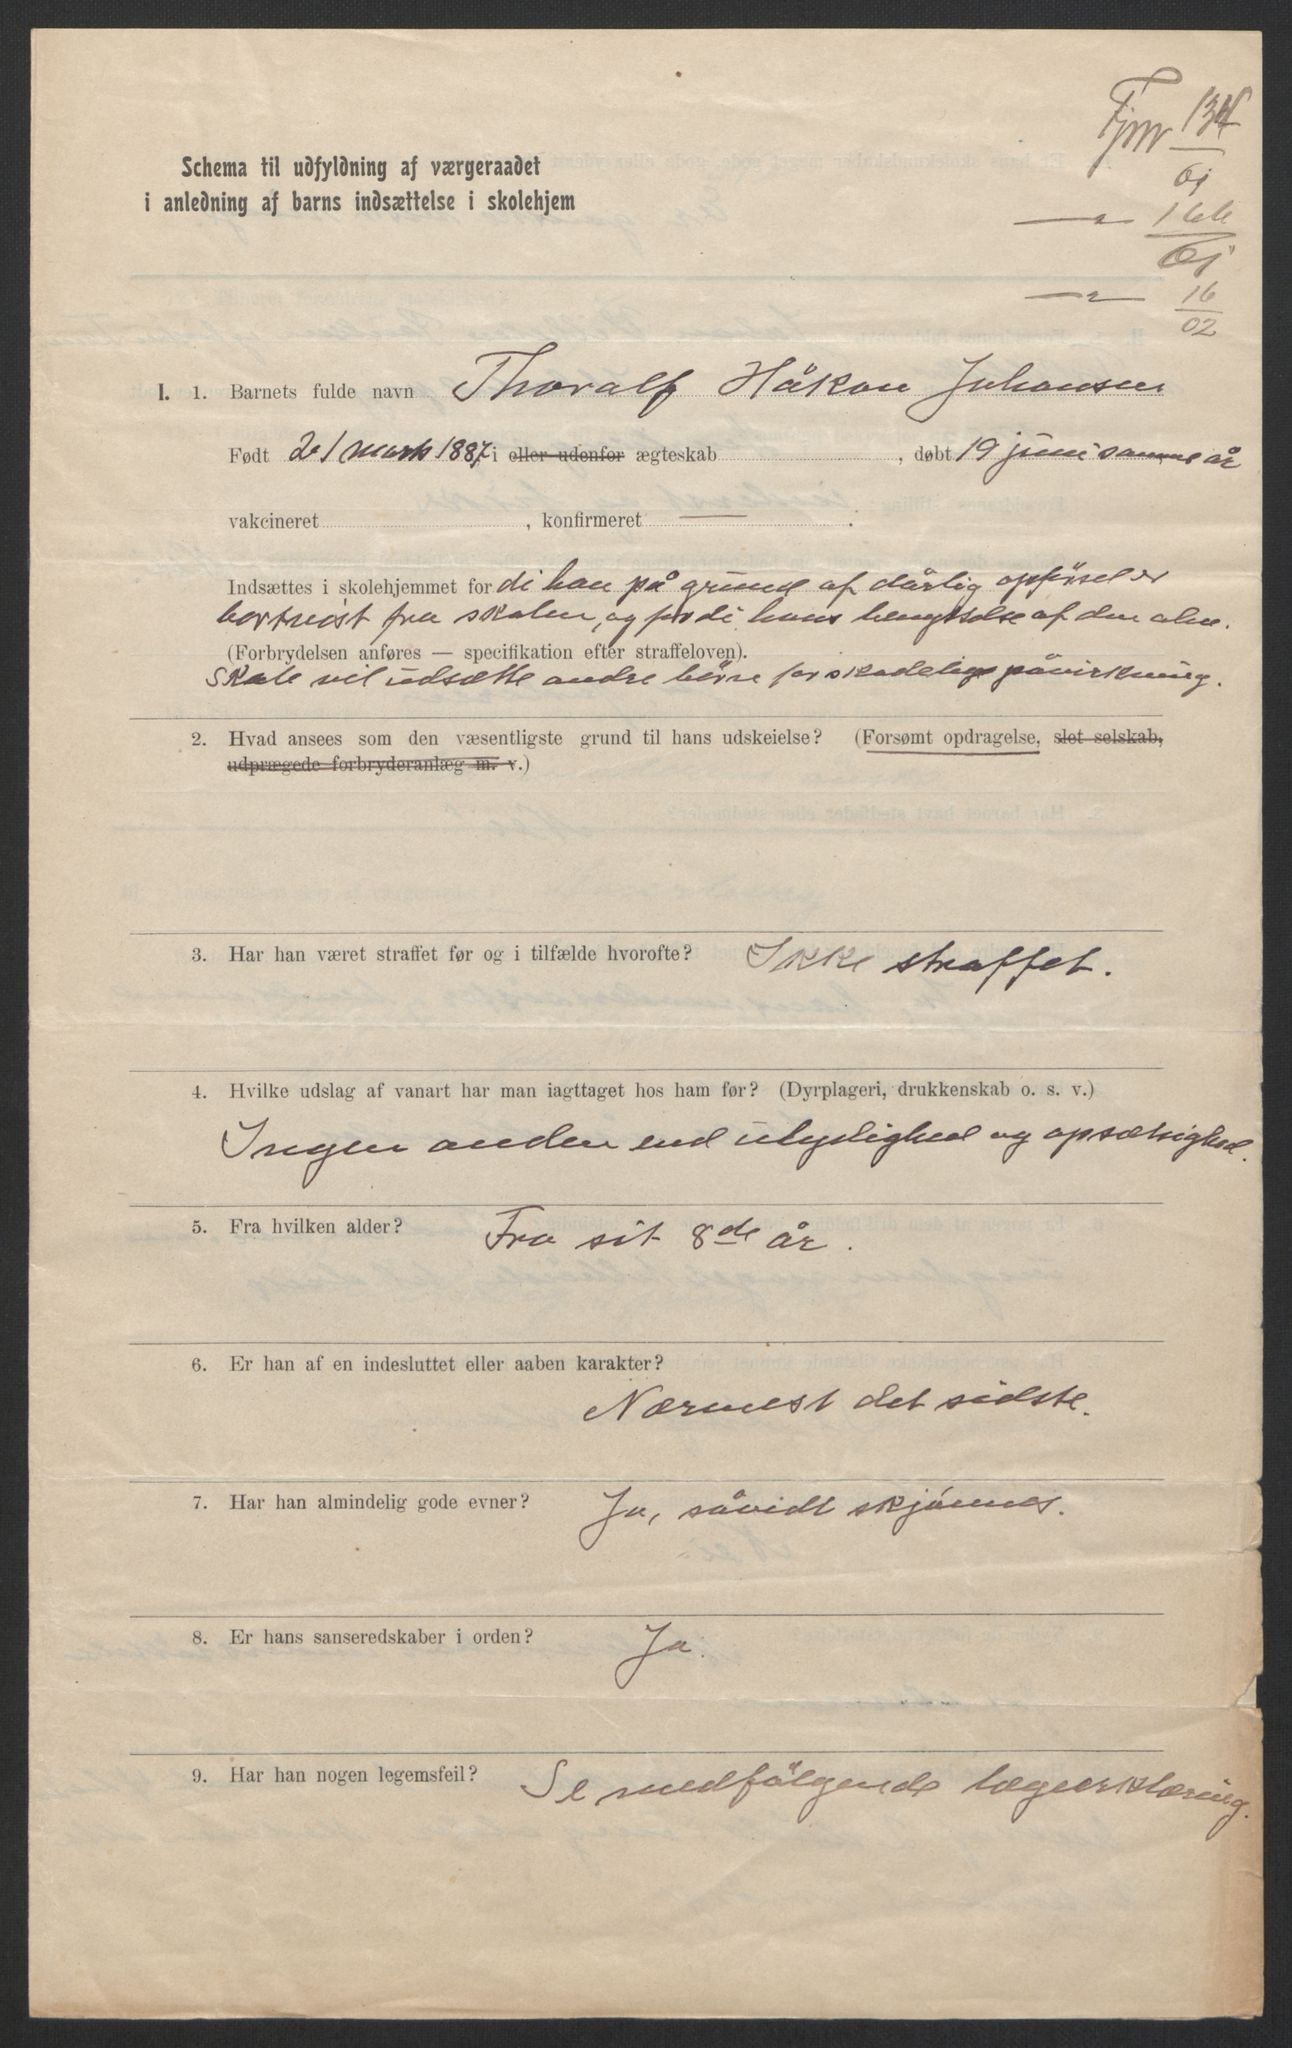 Fjnr 134
01
— " — 166
01
— " — 16
02
Schema til udfyldning af værgeraadet
i anledning af barns indsættelse i skolehjem
I. 1. Barnets fulde navn Thoralf Håkon Johansen
Født 21 marts 1887, i eller udenfor ægteskab , døbt 19 juni samme år
vakcineret , konfirmeret — .
Indsættes i skolehjemmet for di han på grund af dårlig opförsel er
bortvist fra skolen, og fordi hans benyttelse af den alm.
(Forbrydelsen anføres — specifikation efter straffeloven).
Skole vil udsætte andre börn for skadelig påvirkning.
2. Hvad ansees som den væsentligste grund til hans udskeielse? (Forsømt opdragelse, slet selskab,
udprægede forbryderanlæg m. v.)
3. Har han været straffet før og i tilfælde hvorofte? Ikke straffet.
4. Hvilke udslag af vanart har man iagttaget hos ham før? (Dyrplageri, drukkenskab o. s. v.)
Ingen anden end ulydighed og opsætsighed.
5. Fra hvilken alder? Fra sit 8de år.
6. Er han af en indesluttet eller aaben karakter?
Nærmest det sidste.
7. Har han almindelig gode evner? Ja, såvidt skjönnes.
8. Er hans sanseredskaber i orden? Ja.
9. Har han nogen legemsfeil? Se medfölgende lægeerklæring.